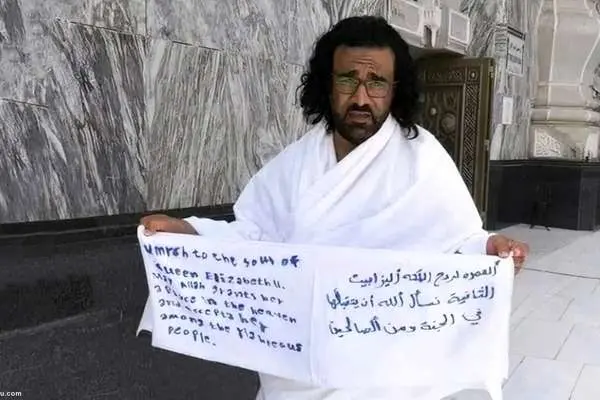 umrah to the soul of
Queen Elizabeth II.
May Allah grants her
a place in the heaven
and accepts her
among the righteous
people.
العمره لروح الملكه أليزابيت
الثانية نسأل الله أن يتقبلها
في الجنة ومن الصالحين
u.com